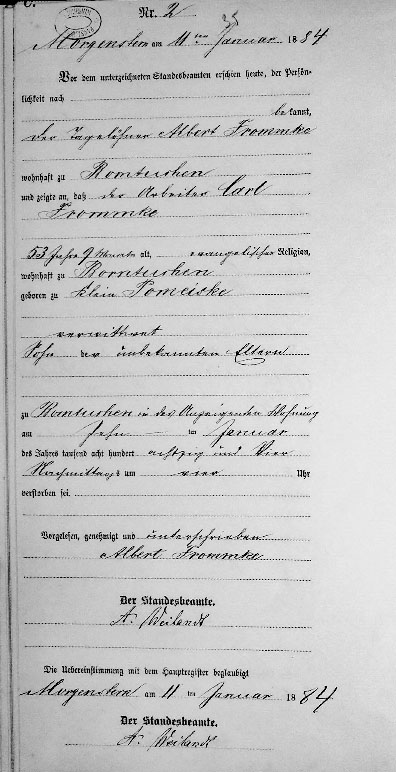 C.
Nr. 2
Morgenstern am 11 ten Januar 1884
Vor dem unterzeichneten Standesbeamten erschien heute, der Persön-
lichkeit nach
bekannt,
der Tagelöhner Albert Frommke
wohnhaft zu Romtuchen
und zeigte an, daß der Arbeiter Carl
Frommke
53 Jahre 9 Monate alt, evangelischer Religion,
wohnhaft zu Romtuchen
geboren zu Klein Pomeiske
verwittwet
Sohn der unbekannten Eltern
zu Romtuchen in des Anzeigenden Wohnung
am Zehn ten Januar
des Jahres tausend acht hundert achtzig und Vier
Nachmittags um vier Uhr
verstorben sei.
Vorgelesen, genehmigt und unterschrieben
Albert Frommke
Der Standesbeamte.
A. Weilandt
Die Uebereinstimmung mit dem Hauptregister beglaubigt
Morgenstern am 11 ten Januar 1884
Der Standesbeamte.
A. Weilandt